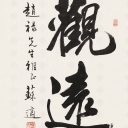 觀遠
趙楊先生雅正 蘇適